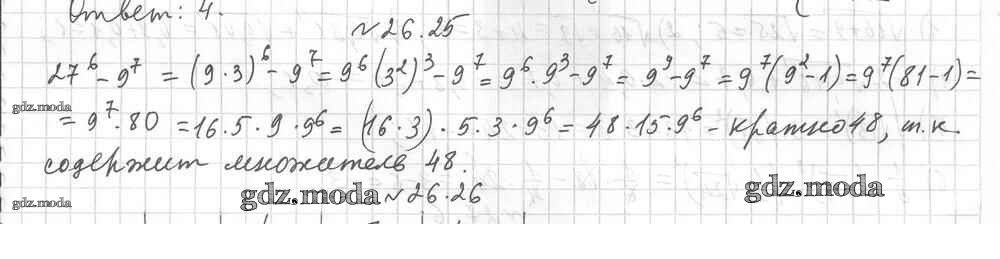 Ответ: 4.
№26.25
27⁶ - 9⁷ = (9·3)⁶ - 9⁷ = 9⁶(3²)³ - 9⁷ = 9⁶·9³ - 9⁷ = 9⁹ - 9⁷ = 9⁷(9² - 1) = 9⁷(81 - 1) =
gdz.moda
= 9⁷·80 = 16·5·9·9⁶ = (16·3)·5·3·9⁶ = 48·15·9⁶ - кратно 48, т.к.
содержит множитель 48.
gdz.moda №26.26 gdz.moda
gdz.moda